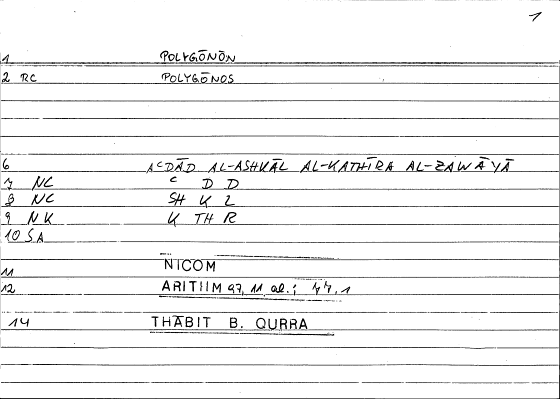 1
1 POLYGŌNŌN
2 RC POLYGŌNOS
6 AᶜDĀD AL-ASHKĀL AL-KATHĪRA AL-ZAWĀYĀ
7 NC ᶜ D D
8 NC SH K L
9 NK K TH R
10 SA
11 NICOM
12 ARITHM 97, 11 al.; 77, 1
14 THĀBIT B. QURRA